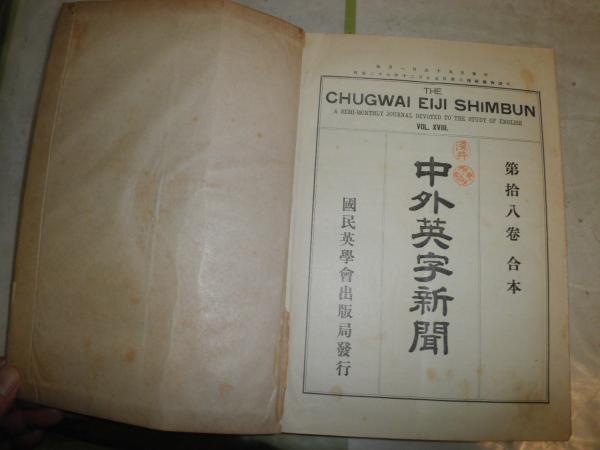 THE
CHUGWAI EIJI SHIMBUN
A SEMI-MONTHLY JOURNAL DEVOTED TO THE STUDY OF ENGLISH
VOL. XVIII.
第拾八卷 合本
中外英字新聞
國民英學會出版局發行